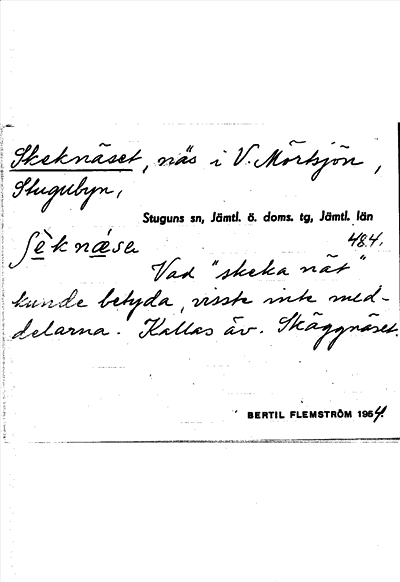 Skeknäset, näs i V. Mörtsjön,
Stugubyn,
Stuguns sn, Jämtl. ö. doms. tg, Jämtl. län
ʃè̱k nǽ̱sa 484.
Vad "skeka nät"
kunde betyda, visste inte med-
delarna. Kallas äv. Skäggnäset.
BERTIL FLEMSTRÖM 1964.